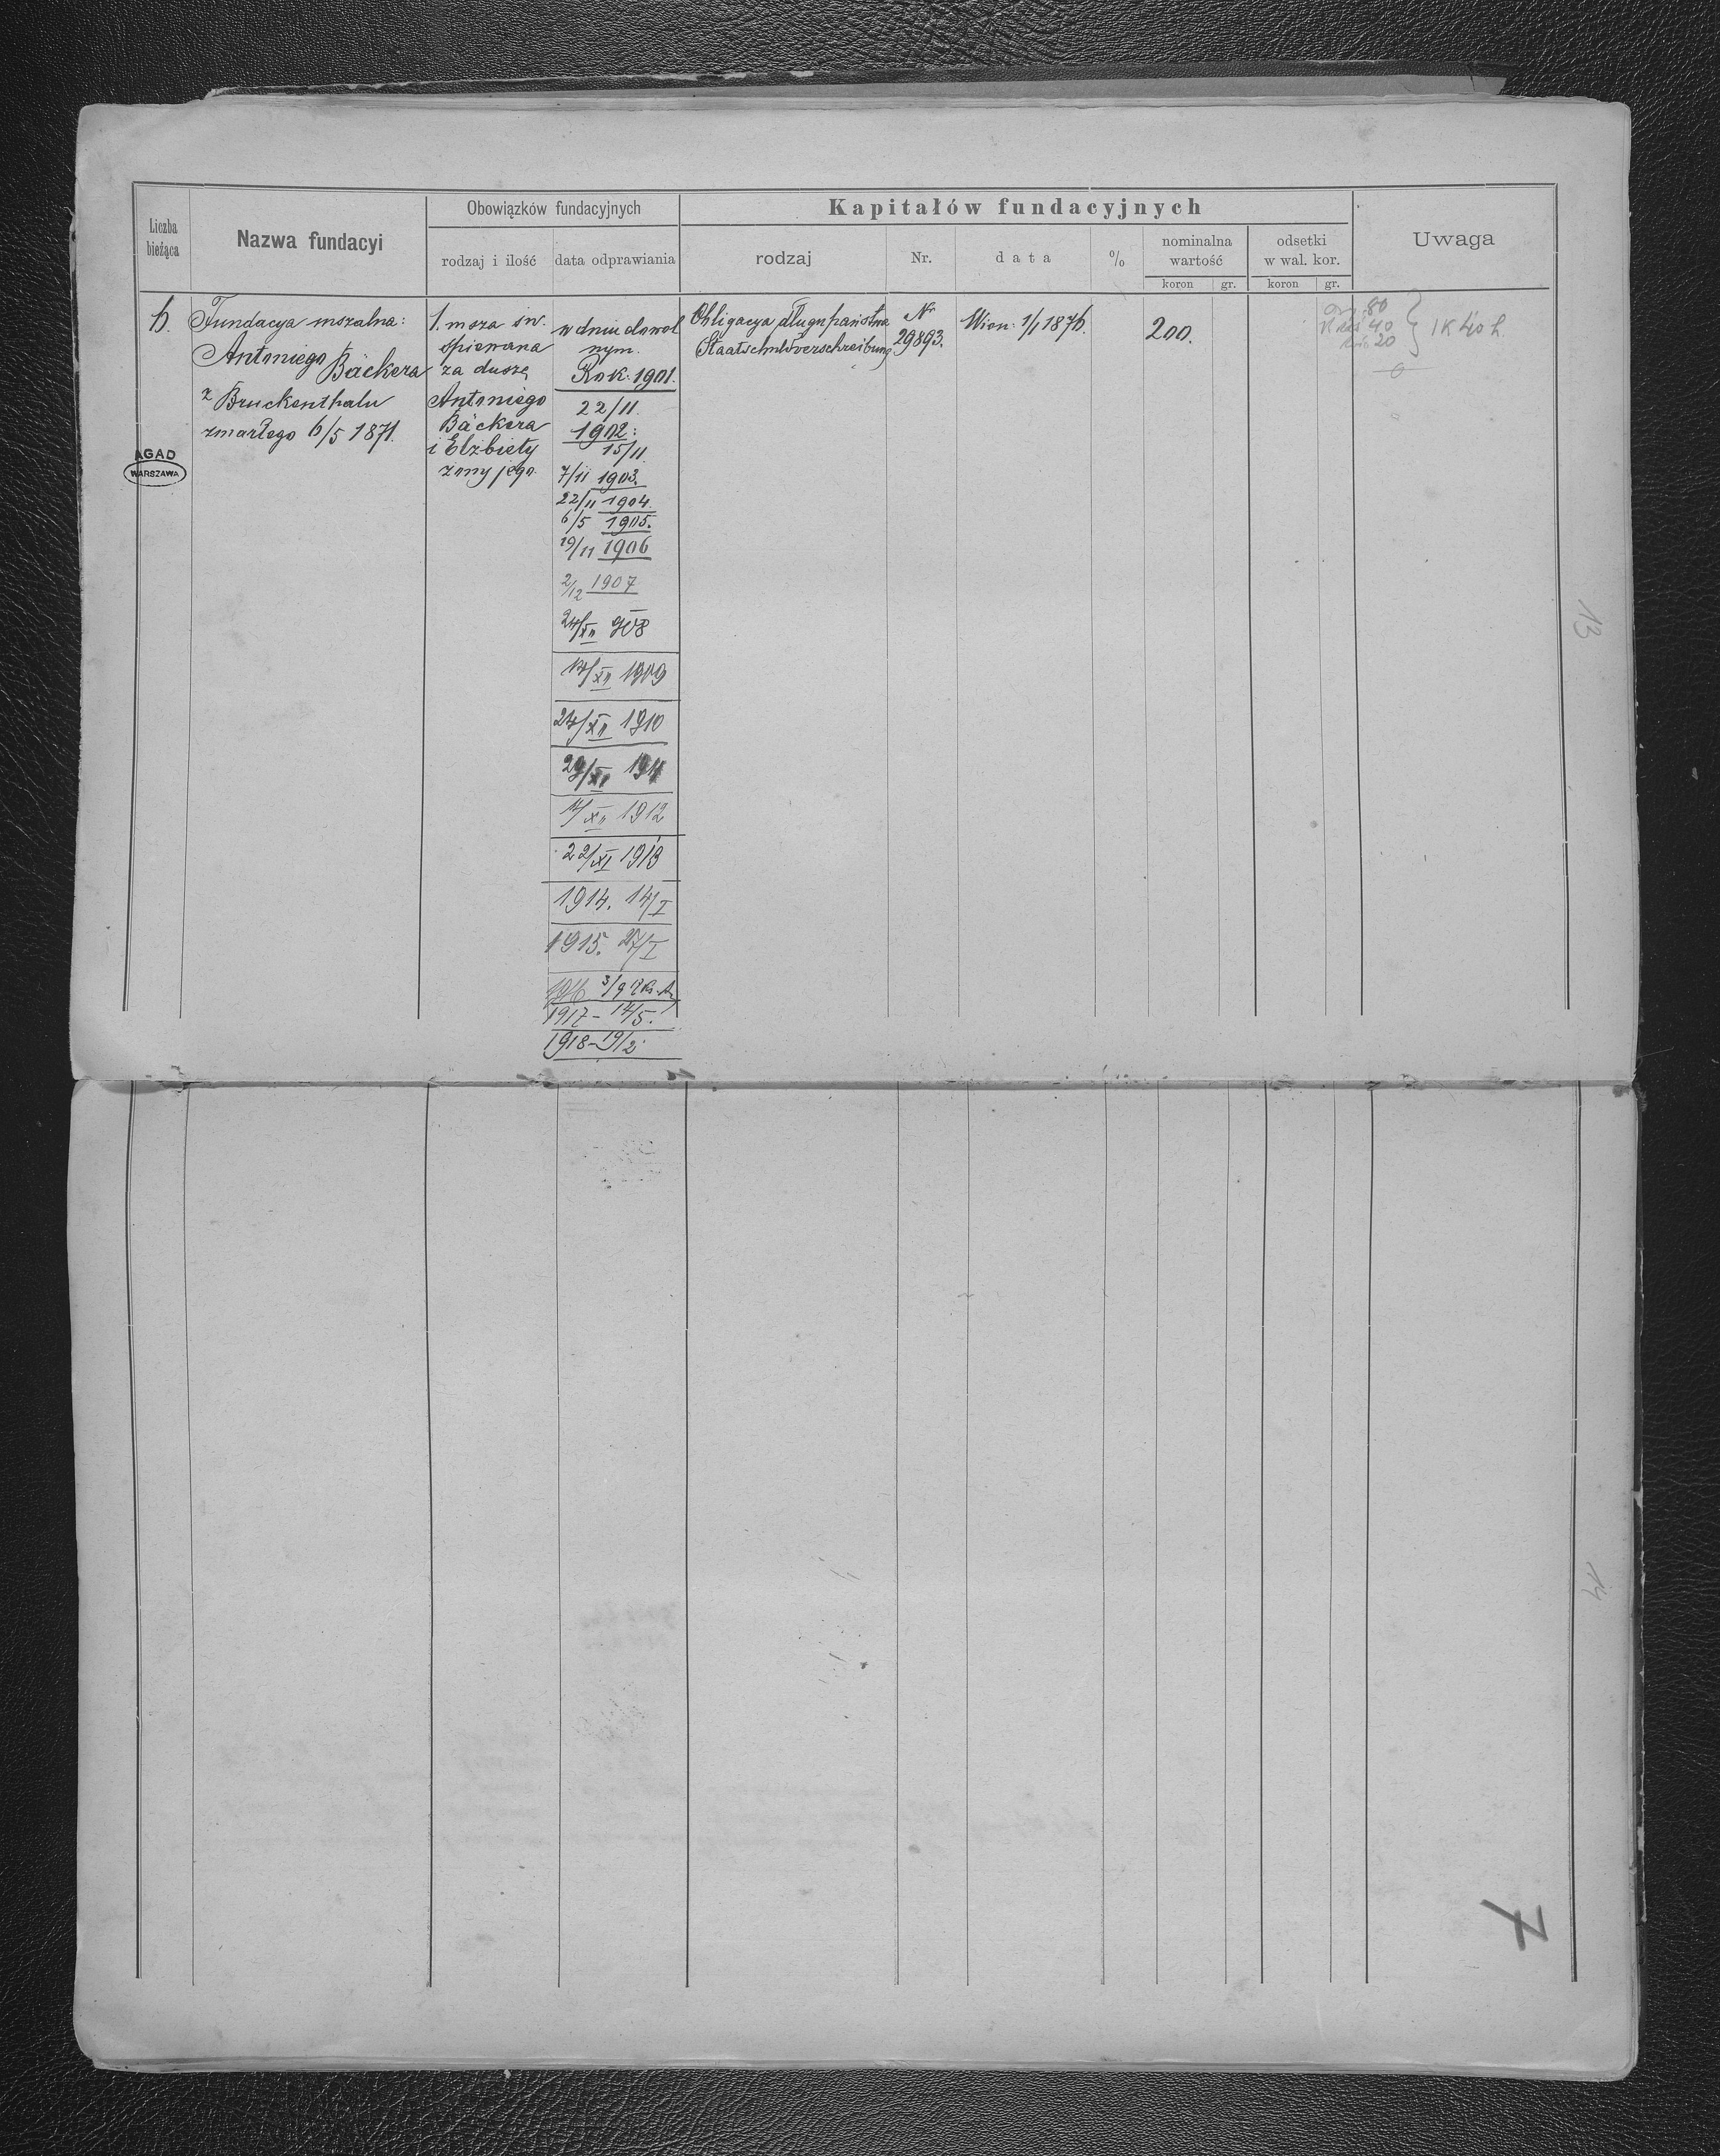 Liczba bieżąca
Nazwa fundacyi
Obowiązków fundacyjnych
rodzaj i ilość
data odprawiania
Kapitałów fundacyjnych
rodzaj
Nr.
data
%
nominalna wartość
koron gr.
odsetki w wal. kor.
koron gr.
Uwaga
6.
Fundacya mszalna:
Antoniego Bäckera
z Bruckenthalu
zmarłego 6/5 1871.
1. msza św.
śpiewana
za duszę
Antoniego
Bäckera
i Elżbiety
żony jego
w dniu dowol
nym.
Rok: 1901.
22/11.
1902:
15/11
7/11 1903.
22/11 1904.
6/5 1905.
19/11 1906
2/12 1907
24/XII 908
14/XII 1909
24/XII 1910
29/XII 1911
/XII 1912
22/XI 1913
1914. 14/I
1915. 27/I
1916 3/9
1917 - 14/5.
1918 - 19/2
Obligacya długu państwa
Staatschuldverschreibung
Nr
29893.
Wien: 1/1 1876.
200.
80
40
20
1K 40 h.
0
AGAD
WARSZAWA
13
14
7